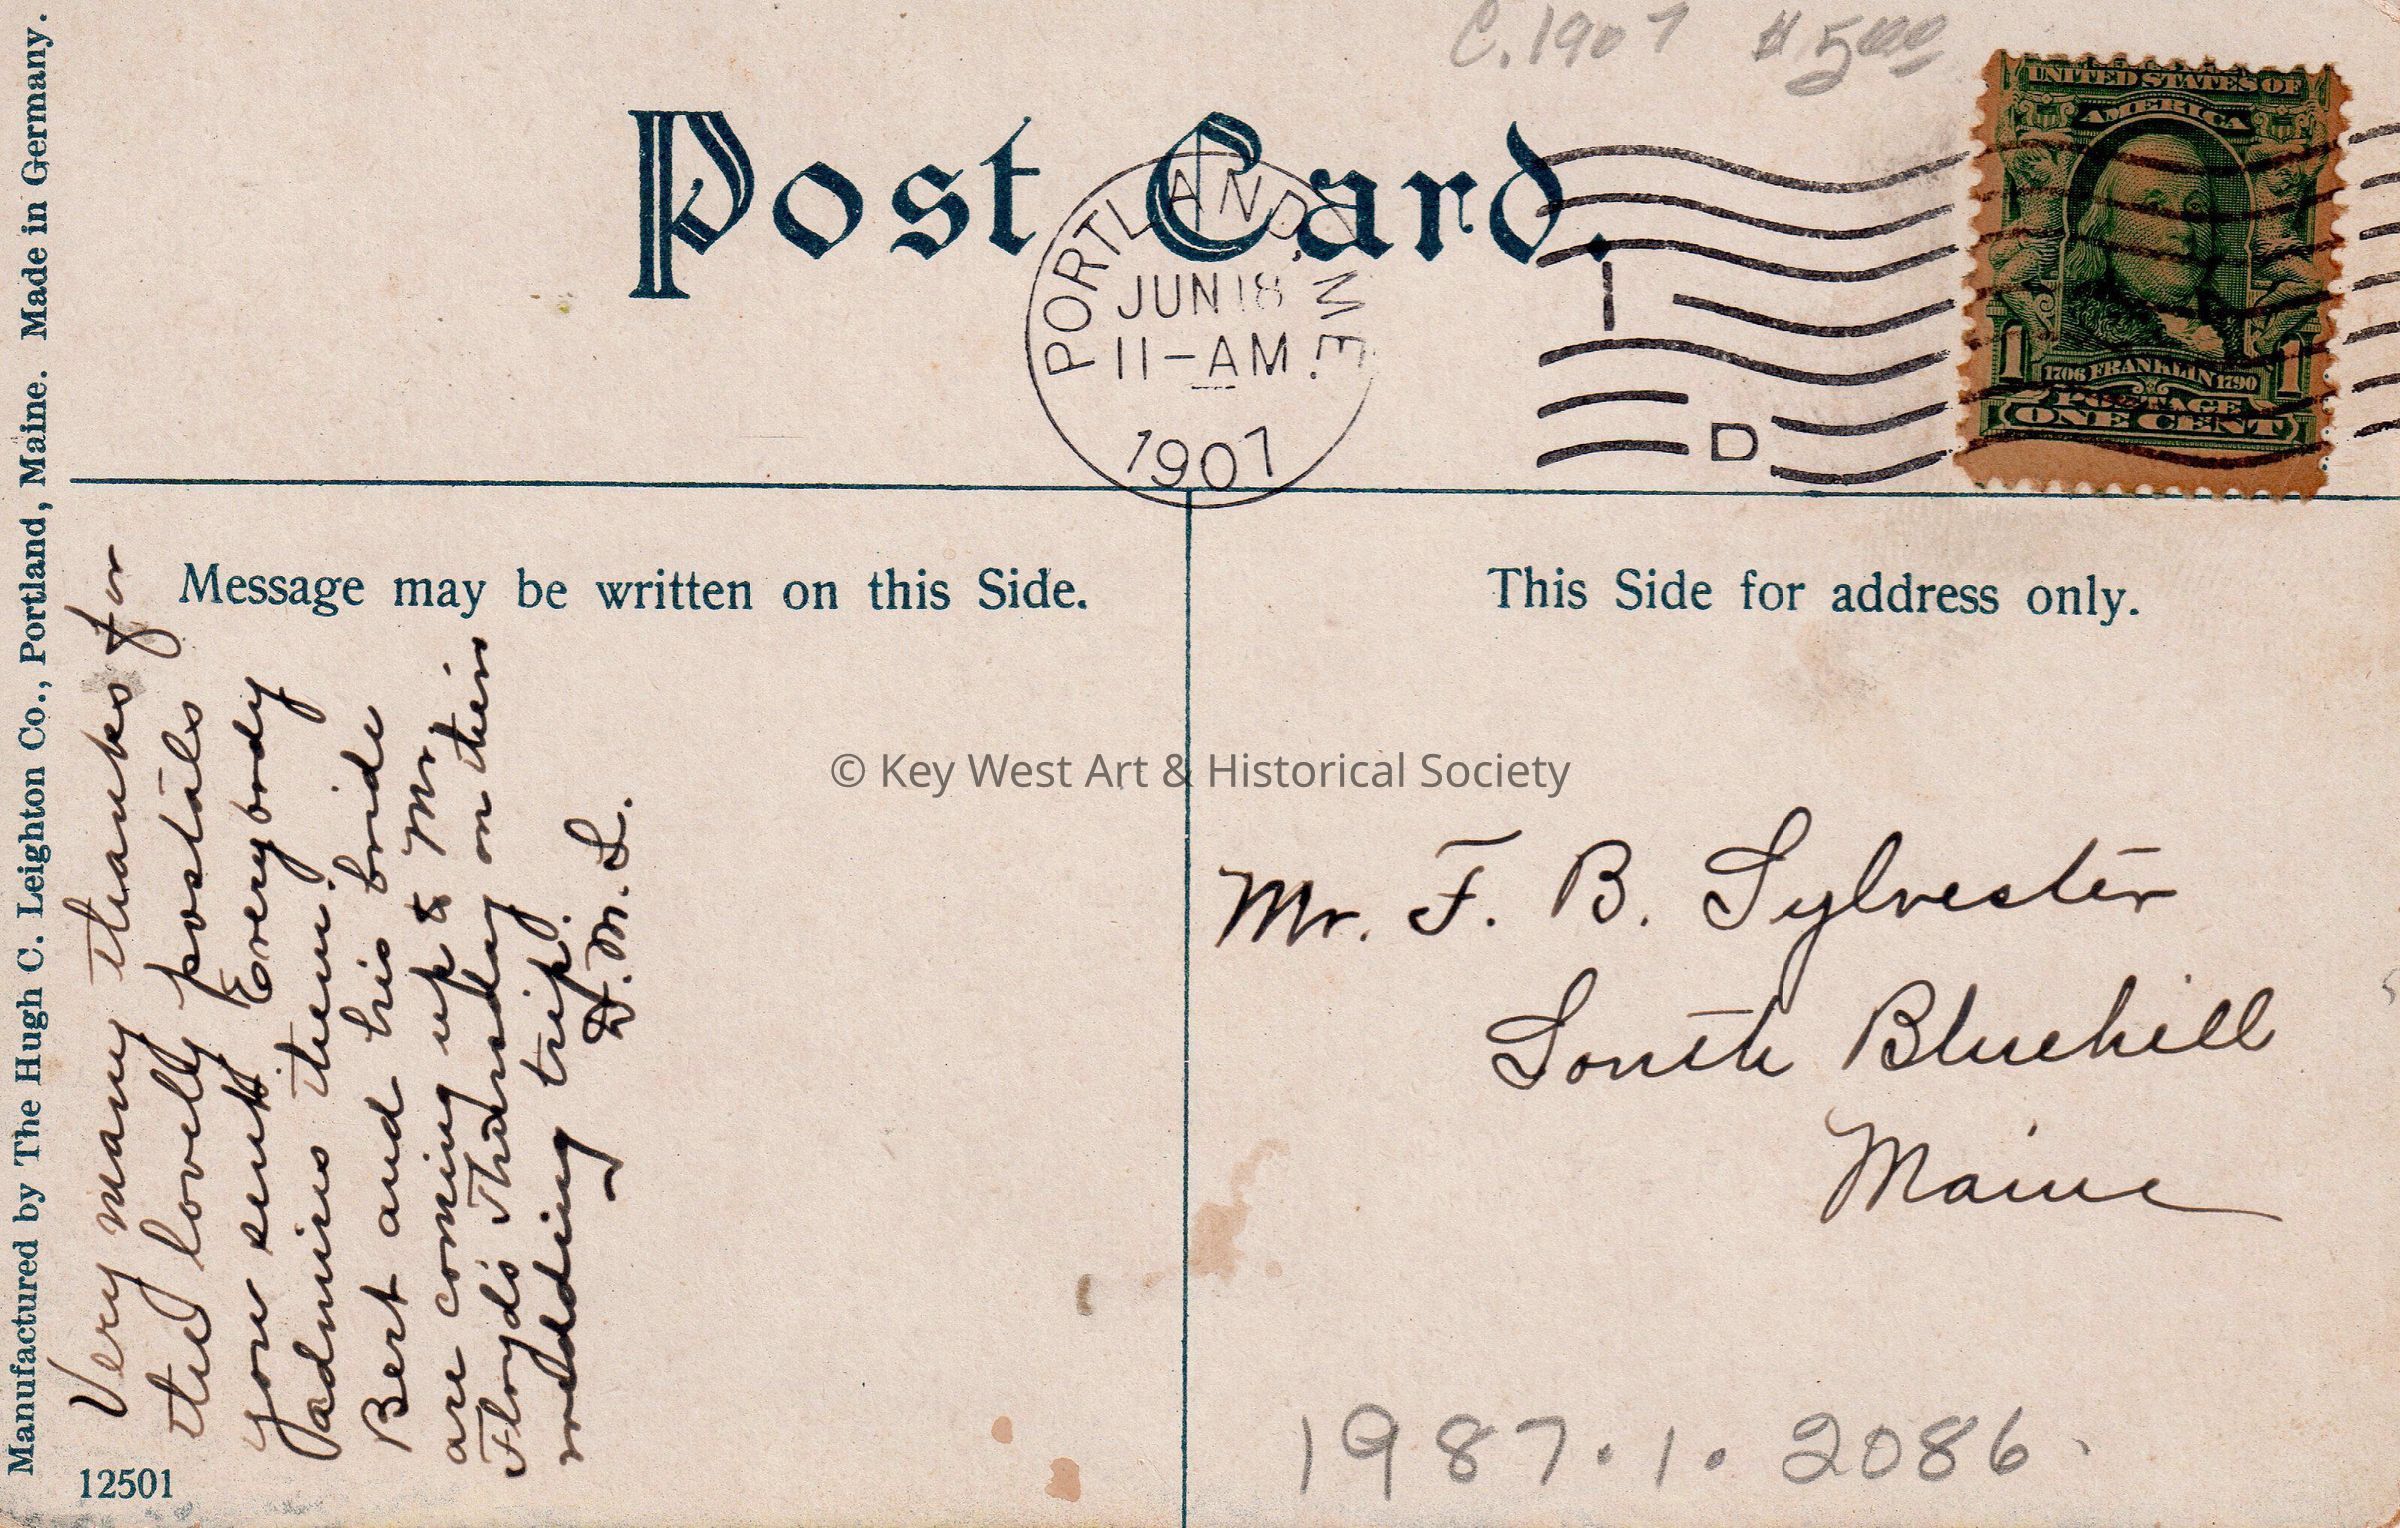 C. 1907 $5.00
UNITED STATES OF
AMERICA
1706 FRANKLIN 1790
1 1
POSTAGE
ONE CENT
Post Card.
PORTLAND, ME.
JUN 18
11-AM
1907
I
D
Manufactured by The Hugh C. Leighton Co., Portland, Maine. Made in Germany.
Message may be written on this Side.
This Side for address only.
Very many thanks for
the lovely postals
you sent Everybody
admires them.
Bert and his bride
are coming up & Mr
Floyd's Thursday on their
wedding trip.
D.M.S.
© Key West Art & Historical Society
Mr. F. B. Sylvester
South Bluehill
Maine
1987.1.2086.
12501